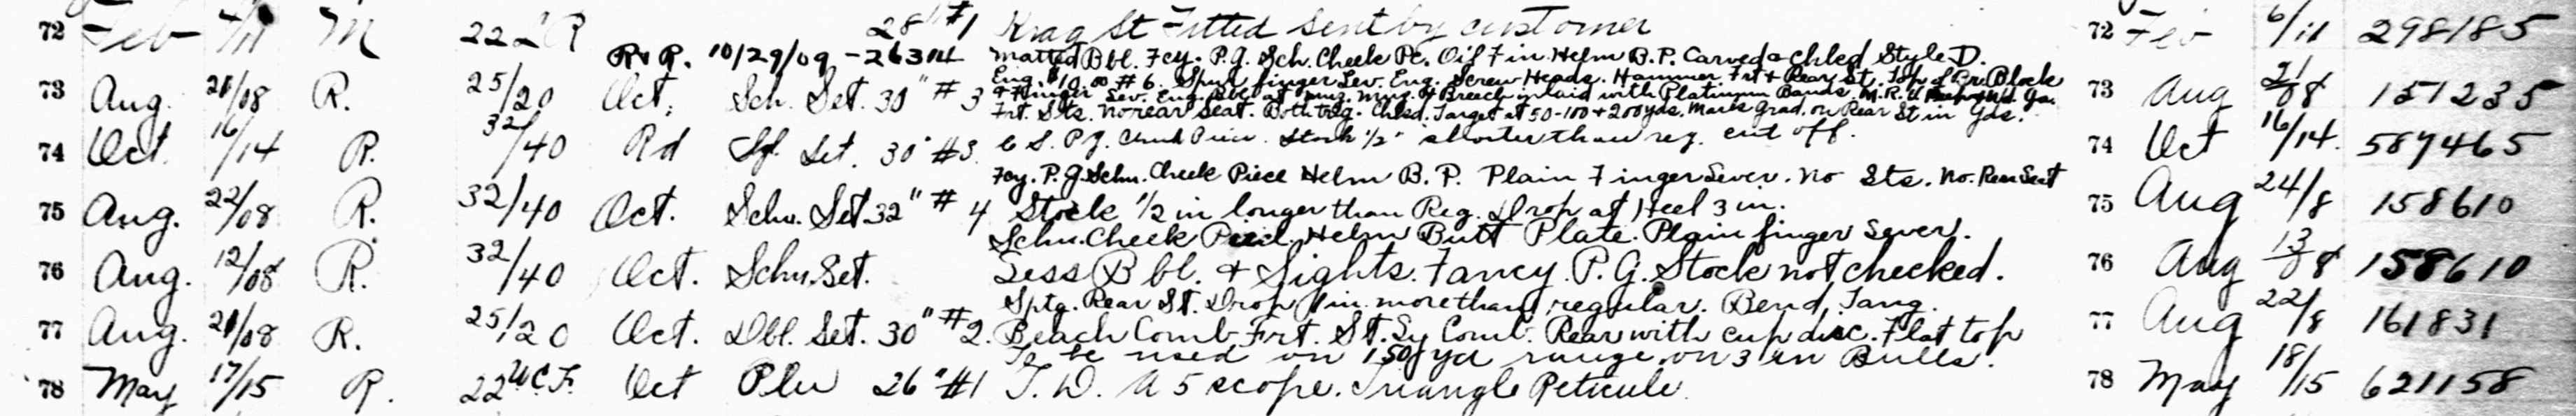 72 Feb M 22 R 28" #1 Krag St Fitted sent by customer 72 Feb 6/11 298185
R & R. 10/29/09 - 26314 Matted Bbl. Fcy. P.G. Sch. Cheek Pc. Oil Fin. Helm B.P. Carved & Chkd Style D.
Eng. $10.00 #6. Spur finger Lev. Eng. Screw Heads. Hammer Frt & Rear St. Top Block
73 Aug. 21/08 R. 25/20 Oct. Sch. Set. 30" #3 & Finger Lev. Eng. Bbl at Breech inlaid with Platinum Bands. 73 Aug 21/08 151235
Frt. Sts. No rear Seat. Both Chkd. Target at 50-100 & 200 yds. Mark grad. on Rear St in yds.
74 Oct. 16/14 R. 32/40 Rd Set. 30" #3 S. P.G. Cheek Piece. Stock 1/2" shorter than reg. cut off. 74 Oct 16/14. 587465
Fcy. P.G. Schu. Cheek Piece Helm B.P. Plain Finger Lever. No Sts. No. Rear Seat
75 Aug. 22/08 R. 32/40 Oct. Schu. Set. 32" #4 Stock 1/2 in longer than Reg. Drop at Heel 3 in. 75 Aug 24/8 158610
Schu. Cheek Piece. Helm Butt Plate. Plain finger Lever.
76 Aug. 12/08 R. 32/40 Oct. Schu. Set. Less Bbl. & Sights. Fancy P.G. Stock not checked. 76 Aug 13/08 158610
Sptg. Rear St. Drop 1 in. more than regular. Bend Tang.
77 Aug. 21/08 R. 25/20 Oct. Dbl. Set. 30" #2. Beach Comb. Frt. St. Ly Comb. Rear with cup disc. Flat top 77 Aug 22/8 161831
To be used on 150 yd range on 3 in Bulls.
78 May 17/15 R. 22 W.C.F. Oct Pln 26" #1 T.D. A 5 scope. Triangle Reticule. 78 May 18/15 621158